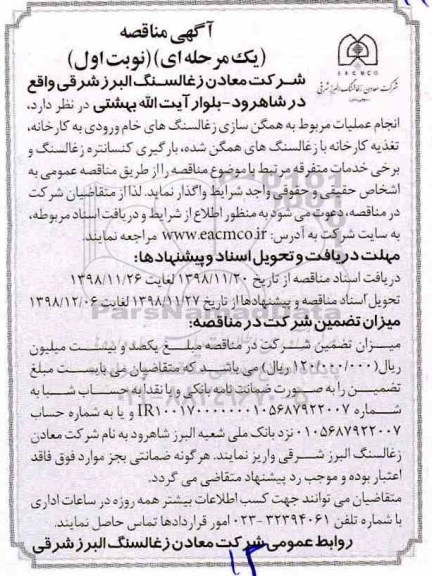 آگهی مناقصه
(یک مرحله ای) (نوبت اول)
EACMCO
شرکت معادن زغالسنگ البرز شرقی
شرکت معادن زغالسنگ البرز شرقی واقع
در شاهرود-بلوار آیت الله بهشتی در نظر دارد،
انجام عملیات مربوط به همگن سازی زغالسنگ های خام ورودی به کارخانه،
تغذیه کارخانه با زغالسنگ های همگن شده، بارگیری کنسانتره زغالسنگ و
برخی خدمات متفرقه مرتبط با موضوع مناقصه را از طریق مناقصه عمومی به
اشخاص حقیقی و حقوقی واجد شرایط واگذار نماید. لذا از متقاضیان شرکت
در مناقصه، دعوت می شود به منظور اطلاع از شرایط و دریافت اسناد مربوطه،
به سایت شرکت به آدرس: www.eacmco.ir مراجعه نمایند.
مهلت دریافت و تحویل اسناد و پیشنهادها:
دریافت اسناد مناقصه از تاریخ ۱۳۹۸/۱۱/۲۰ لغایت ۱۳۹۸/۱۱/۲۶
تحویل اسناد مناقصه و پیشنهادها از تاریخ ۱۳۹۸/۱۱/۲۷ لغایت ۱۳۹۸/۱۲/۰۶
میزان تضمین شرکت در مناقصه:
میزان تضمین شرکت در مناقصه مبلغ یکصد و بیست میلیون
ریال (۱۲۰/۰۰۰/۰۰۰ ریال) می باشد که متقاضیان می بایست مبلغ
تضمین را به صورت ضمانت نامه بانکی یا نقداً به حساب شبا به
شماره IR۱۰۰۱۷۰۰۰۰۰۰۰۱۰۵۶۸۷۹۲۲۰۰۷ و یا به شماره حساب
۰۱۰۵۶۸۷۹۲۲۰۰۷ نزد بانک ملی شعبه البرز شاهرود به نام شرکت معادن
زغالسنگ البرز شرقی واریز نمایند. هرگونه ضمانتی بجز موارد فوق فاقد
اعتبار بوده و موجب رد پیشنهاد متقاضی می گردد.
متقاضیان می توانند جهت کسب اطلاعات بیشتر همه روزه در ساعات اداری
با شماره تلفن ۳۲۳۹۴۰۶۱-۰۲۳ امور قراردادها تماس حاصل نمایند.
روابط عمومی شرکت معادن زغالسنگ البرز شرقی
۱۳